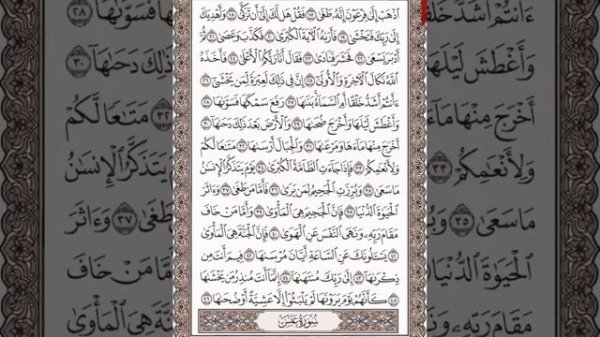 ٱذْهَبْ إِلَىٰ فِرْعَوْنَ إِنَّهُۥ طَغَىٰ ١٧ فَقُلْ هَل لَّكَ إِلَىٰٓ أَن تَزَكَّىٰ ١٨ وَأَهْدِيَكَ
إِلَىٰ رَبِّكَ فَتَخْشَىٰ ١٩ فَأَرَىٰهُ ٱلْءَايَةَ ٱلْكُبْرَىٰ ٢٠ فَكَذَّبَ وَعَصَىٰ ٢١ ثُمَّ
أَدْبَرَ يَسْعَىٰ ٢٢ فَحَشَرَ فَنَادَىٰ ٢٣ فَقَالَ أَنَا۠ رَبُّكُمُ ٱلْأَعْلَىٰ ٢٤ فَأَخَذَهُ
ٱللَّهُ نَكَالَ ٱلْءَاخِرَةِ وَٱلْأُولَىٰٓ ٢٥ إِنَّ فِى ذَٰلِكَ لَعِبْرَةً لِّمَن يَخْشَىٰٓ ٢٦
ءَأَنتُمْ أَشَدُّ خَلْقًا أَمِ ٱلسَّمَآءُ بَنَىٰهَا ٢٧ رَفَعَ سَمْكَهَا فَسَوَّىٰهَا ٢٨
وَأَغْطَشَ لَيْلَهَا وَأَخْرَجَ ضُحَىٰهَا ٢٩ وَٱلْأَرْضَ بَعْدَ ذَٰلِكَ دَحَىٰهَآ ٣٠
أَخْرَجَ مِنْهَا مَآءَهَا وَمَرْعَىٰهَا ٣١ وَٱلْجِبَالَ أَرْسَىٰهَا ٣٢ مَتَٰعًا لَّكُمْ
وَلِأَنْعَٰمِكُمْ ٣٣ فَإِذَا جَآءَتِ ٱلطَّآمَّةُ ٱلْكُبْرَىٰ ٣٤ يَوْمَ يَتَذَكَّرُ ٱلْإِنسَٰنُ
مَا سَعَىٰ ٣٥ وَبُرِّزَتِ ٱلْجَحِيمُ لِمَن يَرَىٰ ٣٦ فَأَمَّا مَن طَغَىٰ ٣٧ وَءَاثَرَ
ٱلْحَيَوٰةَ ٱلدُّنْيَا ٣٨ فَإِنَّ ٱلْجَحِيمَ هِىَ ٱلْمَأْوَىٰ ٣٩ وَأَمَّا مَنْ خَافَ
مَقَامَ رَبِّهِۦ وَنَهَى ٱلنَّفْسَ عَنِ ٱلْهَوَىٰ ٤٠ فَإِنَّ ٱلْجَنَّةَ هِىَ ٱلْمَأْوَىٰ
٤١ يَسْـَٔلُونَكَ عَنِ ٱلسَّاعَةِ أَيَّانَ مُرْسَىٰهَا ٤٢ فِيمَ أَنتَ مِن
ذِكْرَىٰهَآ ٤٣ إِلَىٰ رَبِّكَ مُنتَهَىٰهَآ ٤٤ إِنَّمَآ أَنتَ مُنذِرُ مَن يَخْشَىٰهَا
٤٥ كَأَنَّهُمْ يَوْمَ يَرَوْنَهَا لَمْ يَلْبَثُوٓا۟ إِلَّا عَشِيَّةً أَوْ ضُحَىٰهَا ٤٦
سُورَةُ عَبَسَ